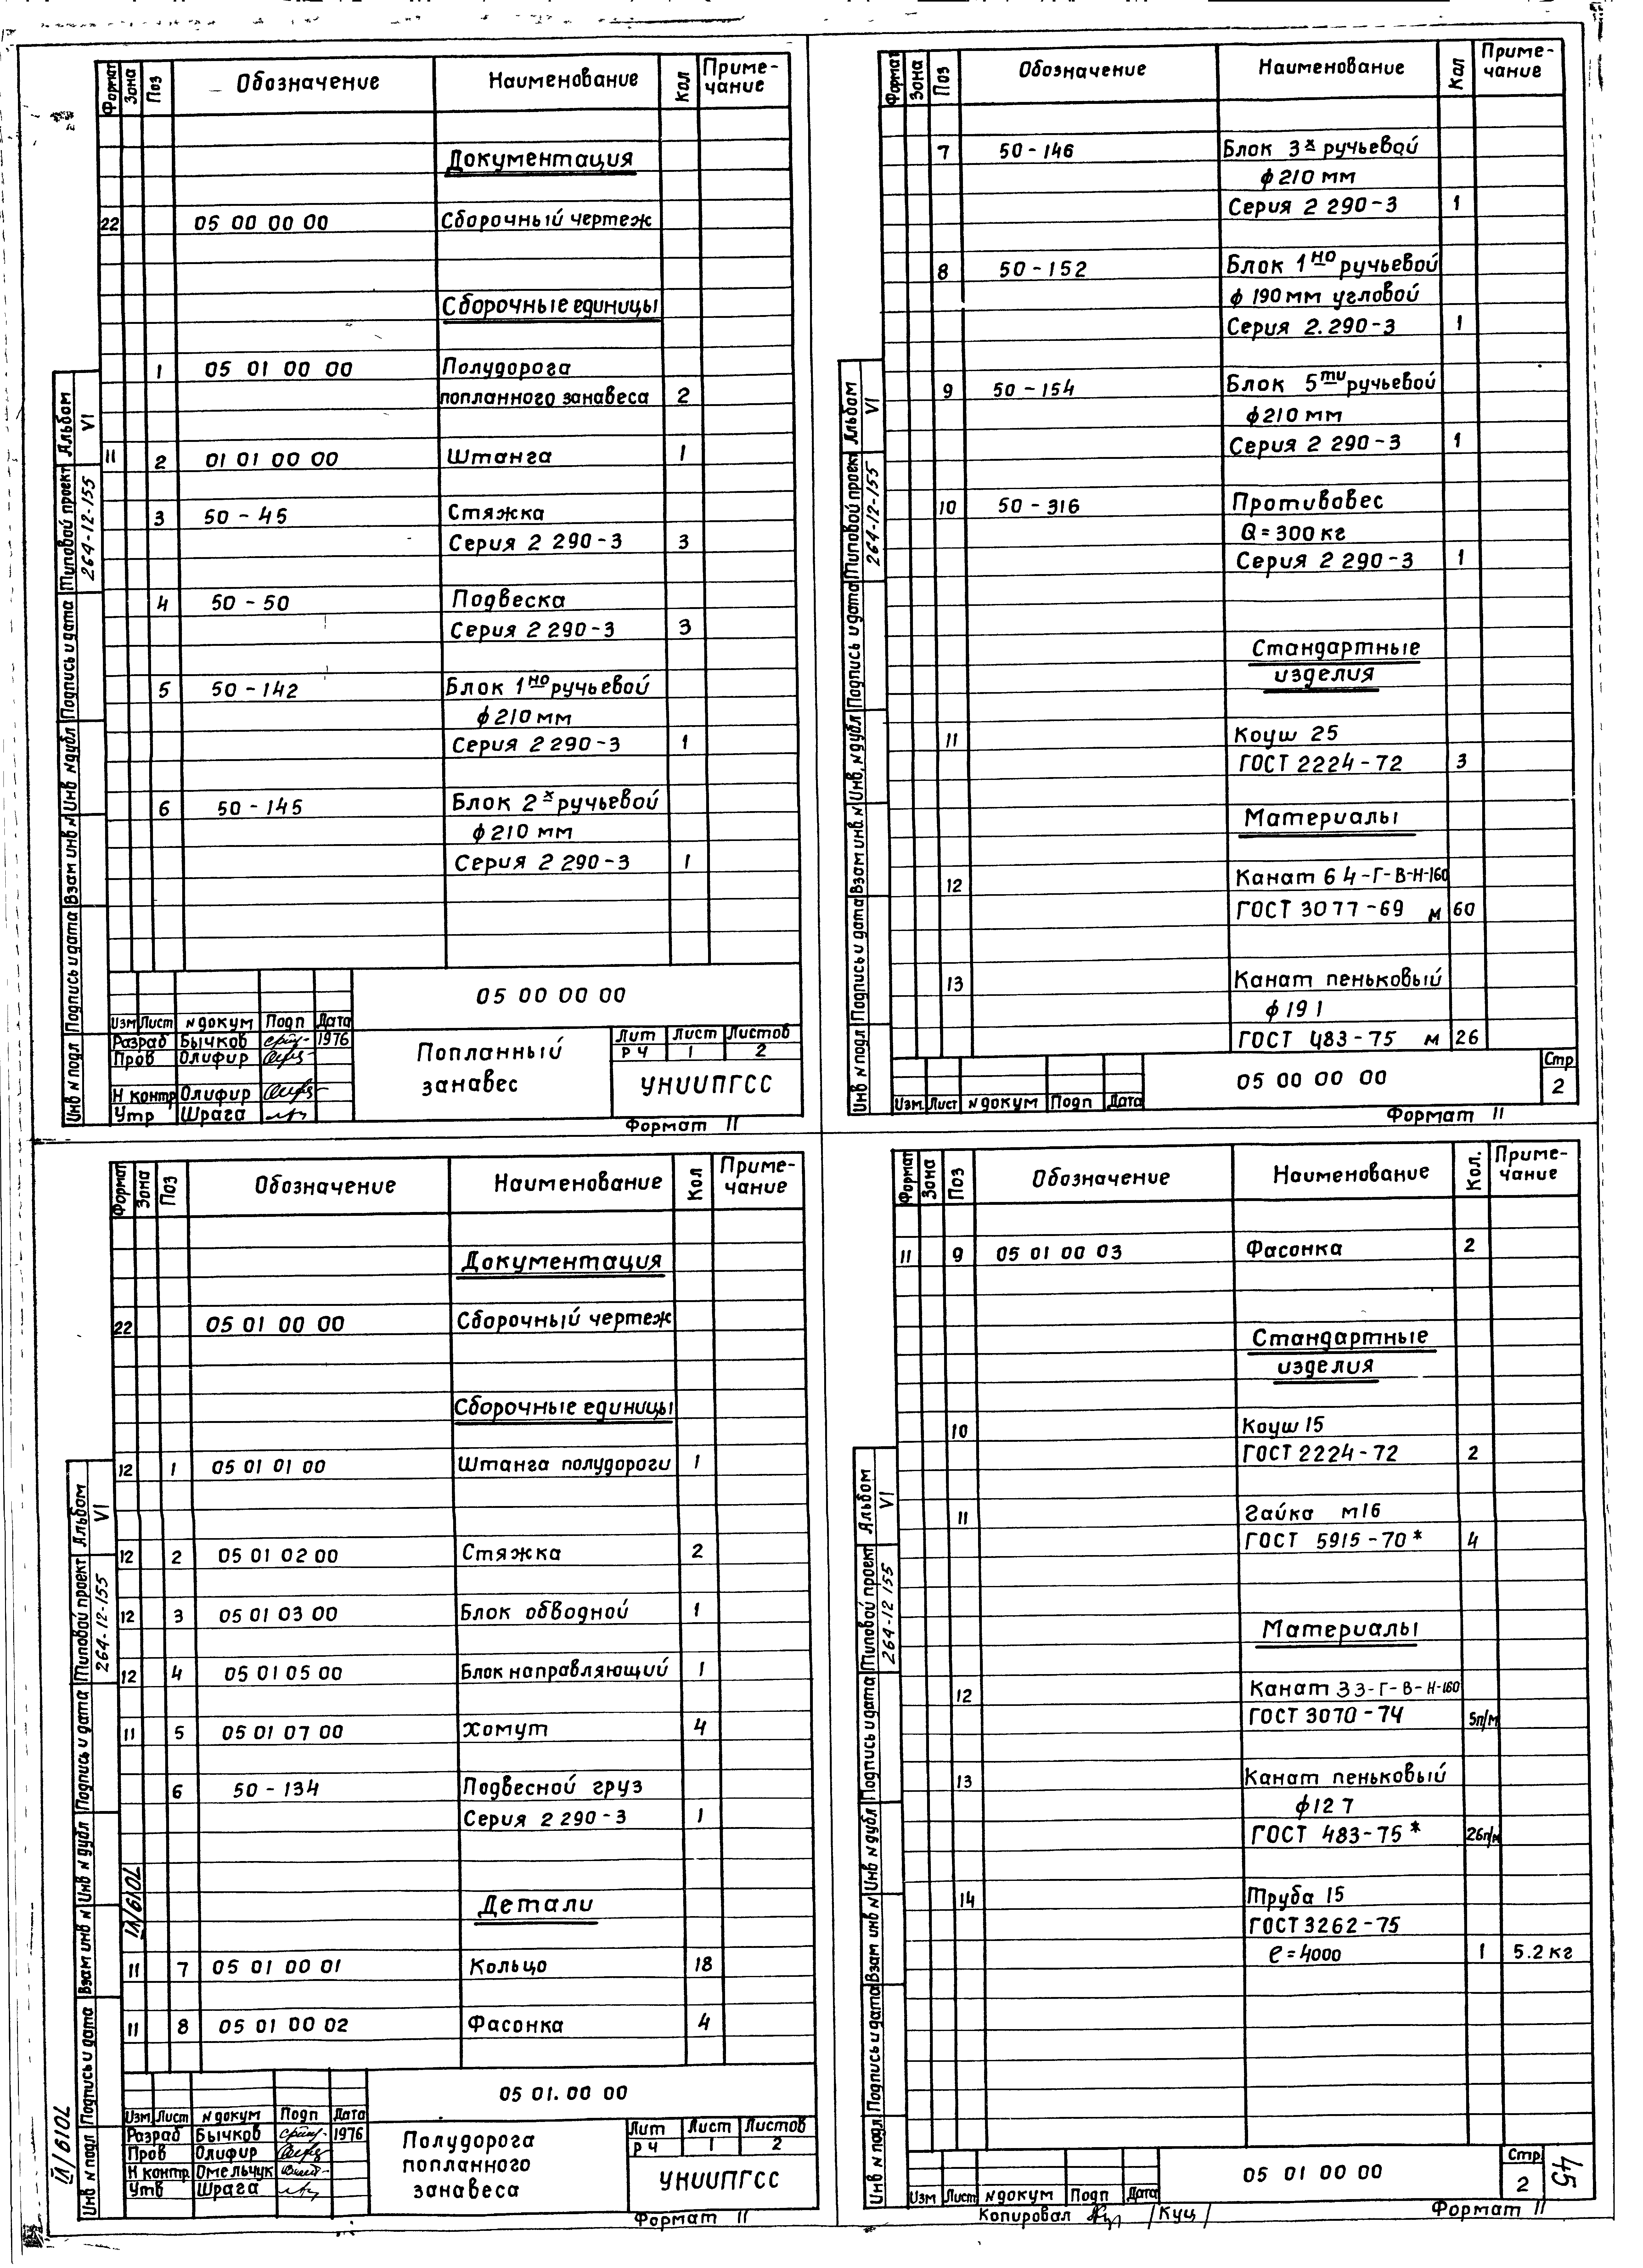 Формат Зона Поз Обозначение Наименование Кол Приме-
чание
Документация
22 05 00 00 00 Сборочный чертеж
Сборочные единицы
1 05 01 00 00 Полудорога
попланного занавеса 2
11 2 01 01 00 00 Штанга 1
3 50-45 Стяжка
Серия 2 290-3 3
4 50-50 Подвеска
Серия 2 290-3 3
5 50-142 Блок 1но ручьевой
ϕ210 мм
Серия 2 290-3 1
6 50-145 Блок 2х ручьевой
ϕ210 мм
Серия 2 290-3 1
Альбом VI
Типовой проект 264-12-155
Подпись и дата
Инв № дубл
Взам инв №
Подпись и дата
Инв № подл
05 00 00 00
Изм Лист № докум Подп Дата
Разраб Бычков 1976
Пров Олифир
Н контр Олифир
Утр Шрага
Попланный
занавес
Лит Лист Листов
РЧ 1 2
УНИИПГСС
Формат 11
Формат Зона Поз Обозначение Наименование Кол Приме-
чание
7 50-146 Блок 3х ручьевой
ϕ210 мм
Серия 2 290-3 1
8 50-152 Блок 1но ручьевой
ϕ 190мм угловой
Серия 2.290-3 1
9 50-154 Блок 5ти ручьевой
ϕ210 мм
Серия 2 290-3 1
10 50-316 Противовес
Q=300кг
Серия 2 290-3 1
Стандартные
изделия
11 Коуш 25
ГОСТ 2224-72 3
Материалы
12 Канат 6 4-Г-В-Н-160
ГОСТ 3077-69 м 60
13 Канат пеньковый
ϕ19 1
ГОСТ 483-75 м 26
Альбом VI
Типовой проект 264-12-155
Подпись и дата
Инв, № дубл
Взам инв. №
Подпись и дата
Инв № подл
Изм. Лист № докум Подп Дата
05 00 00 00
Стр
2
Формат 11
Формат Зона Поз Обозначение Наименование Кол Приме-
чание
Документация
22 05 01 00 00 Сборочный чертеж
Сборочные единицы
12 1 05 01 01 00 Штанга полудороги 1
12 2 05 01 02 00 Стяжка 2
12 3 05 01 03 00 Блок обводной 1
12 4 05 01 05 00 Блок направляющий 1
11 5 05 01 07 00 Хомут 4
6 50-134 Подвесной груз
Серия 2 290-3 1
Детали
11 7 05 01 00 01 Кольцо 18
11 8 05 01 00 02 Фасонка 4
Альбом VI
Типовой проект 264-12-155
Подпись и дата
Инв № дубл
Взам инв №
Подпись и дата
Инв № подл
05 01. 00 00
Изм. Лист № докум Подп Дата
Разраб Бычков 1976
Пров Олифир
Н контр. Омельчук
Утв Шрага
Полудорога
попланного
занавеса
Лит Лист Листов
РЧ 1 2
УНИИПГСС
Формат 11
Формат Зона Поз Обозначение Наименование Кол. Приме-
чание
11 9 05 01 00 03 Фасонка 2
Стандартные
изделия
10 Коуш 15
ГОСТ 2224-72 2
11 Гайка м16
ГОСТ 5915-70* 4
Материалы
12 Канат 3 3-Г-В-Н-160
ГОСТ 3070-74 5п/м
13 Канат пеньковый
ϕ12 7
ГОСТ 483-75* 26п/м
14 Труба 15
ГОСТ 3262-75
ℓ=4000 1 5.2 кг
Альбом VI
Типовой проект 264-12 155
Подпись и дата
Инв № дубл
Взам инв №
Подпись и дата
Инв № подл.
Изм Лист № докум Подп Дата
05 01 00 00
Стр.
2
45
Копировал /Куц/
Формат 11